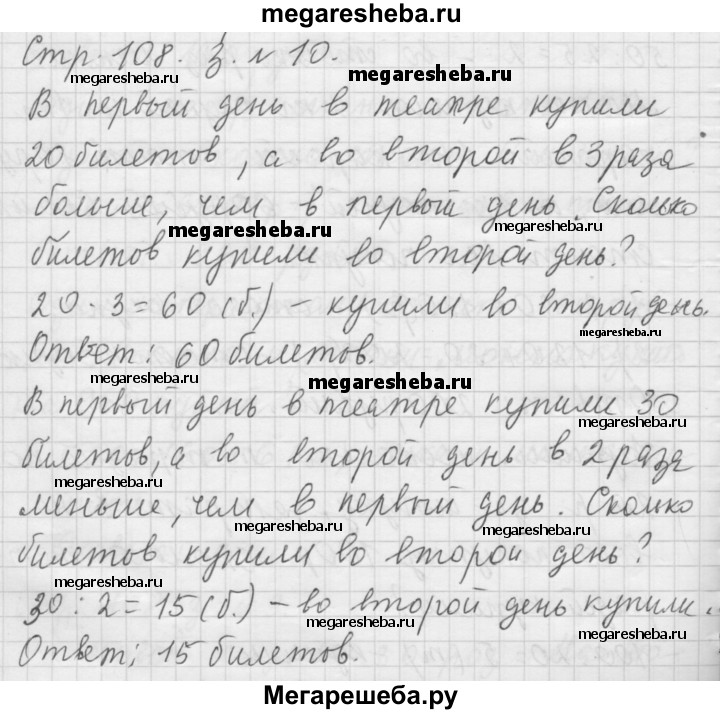 megaresheba.ru
Стр. 108. З. № 10.
megaresheba.ru
megaresheba.ru
В первый день в театре купили
20 билетов, а во второй в 3 раза
megaresheba.ru
megaresheba.ru
больше, чем в первый день. Сколько
megaresheba.ru
megaresheba.ru
билетов купили во второй день?
20 · 3 = 60 (б.) – купили во второй день.
megaresheba.ru
Ответ: 60 билетов.
megaresheba.ru
megaresheba.ru
В первый день в театре купили 30
megaresheba.ru
билетов, а во второй день в 2 раза
меньше, чем в первый день. Сколько
megaresheba.ru
megaresheba.ru
билетов купили во второй день?
30 : 2 = 15 (б.) – во второй день купили.
megaresheba.ru
megaresheba.ru
Ответ: 15 билетов.
Мегарешеба.ру